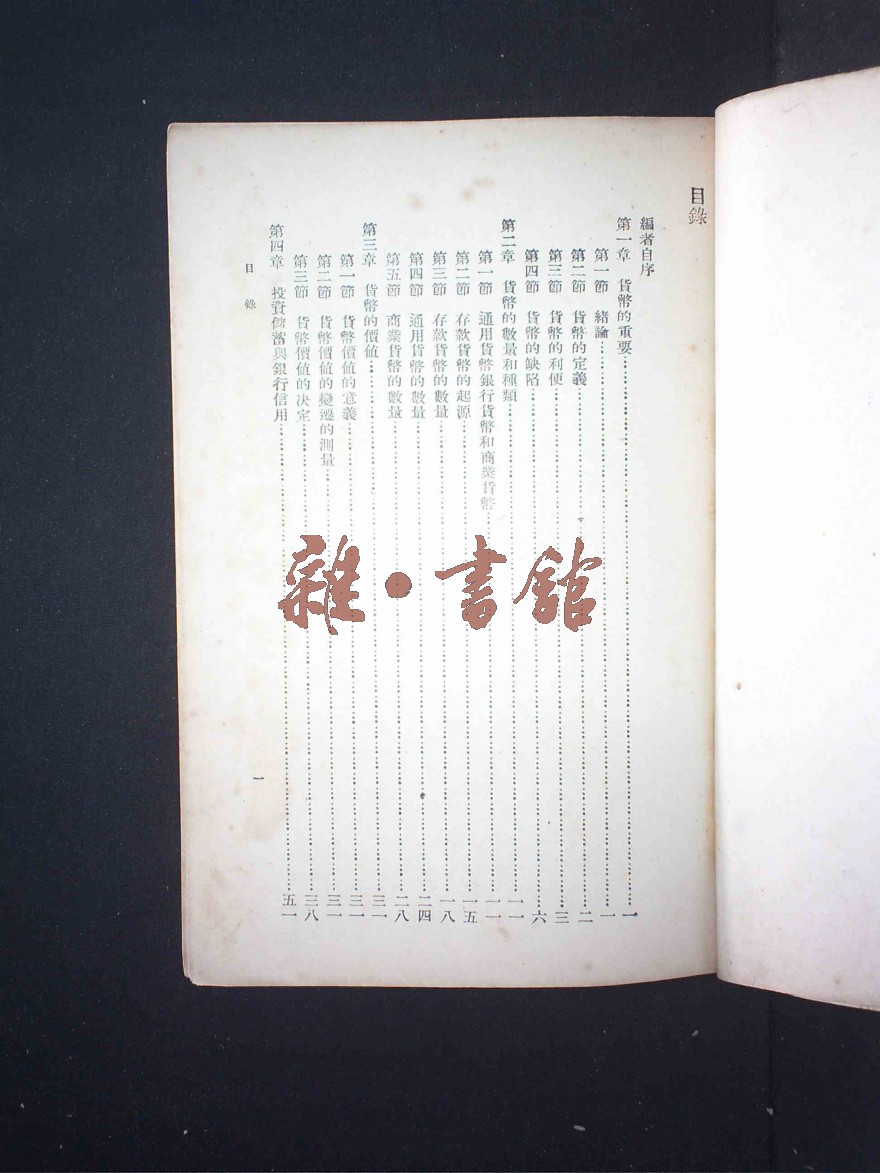 目錄
編者自序
第一章　貨幣的重要……一
第一節　緒論……一
第二節　貨幣的定義……二
第三節　貨幣的利便……三
第四節　貨幣的缺陷……六
第二章　貨幣的數量和種類……一一
第一節　通用貨幣銀行貨幣和商業貨幣……一一
第二節　存款貨幣的起源……一五
第三節　存款貨幣的數量……一八
第四節　通用貨幣的數量……二四
第五節　商業貨幣的數量……二八
第三章　貨幣的價値……三一
第一節　貨幣價値的意義……三一
第二節　貨幣價値的變遷的測量……三一
第三節　貨幣價値的决定……三八
第四章　投資儲蓄與銀行信用……五一
目錄
一
雜·書館